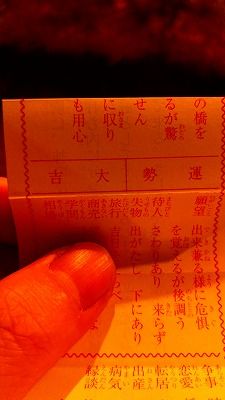 の橋を
るが驚
せん
に取り
も用心
運勢 大吉
願望 出来兼る様に危惧
を覚えるが後調う
待人 さわりあり 来らず
失物 出がたし 下にあり
旅行 吉日
商売
学問
相場
争事
恋愛
転居
出産
病気
縁談